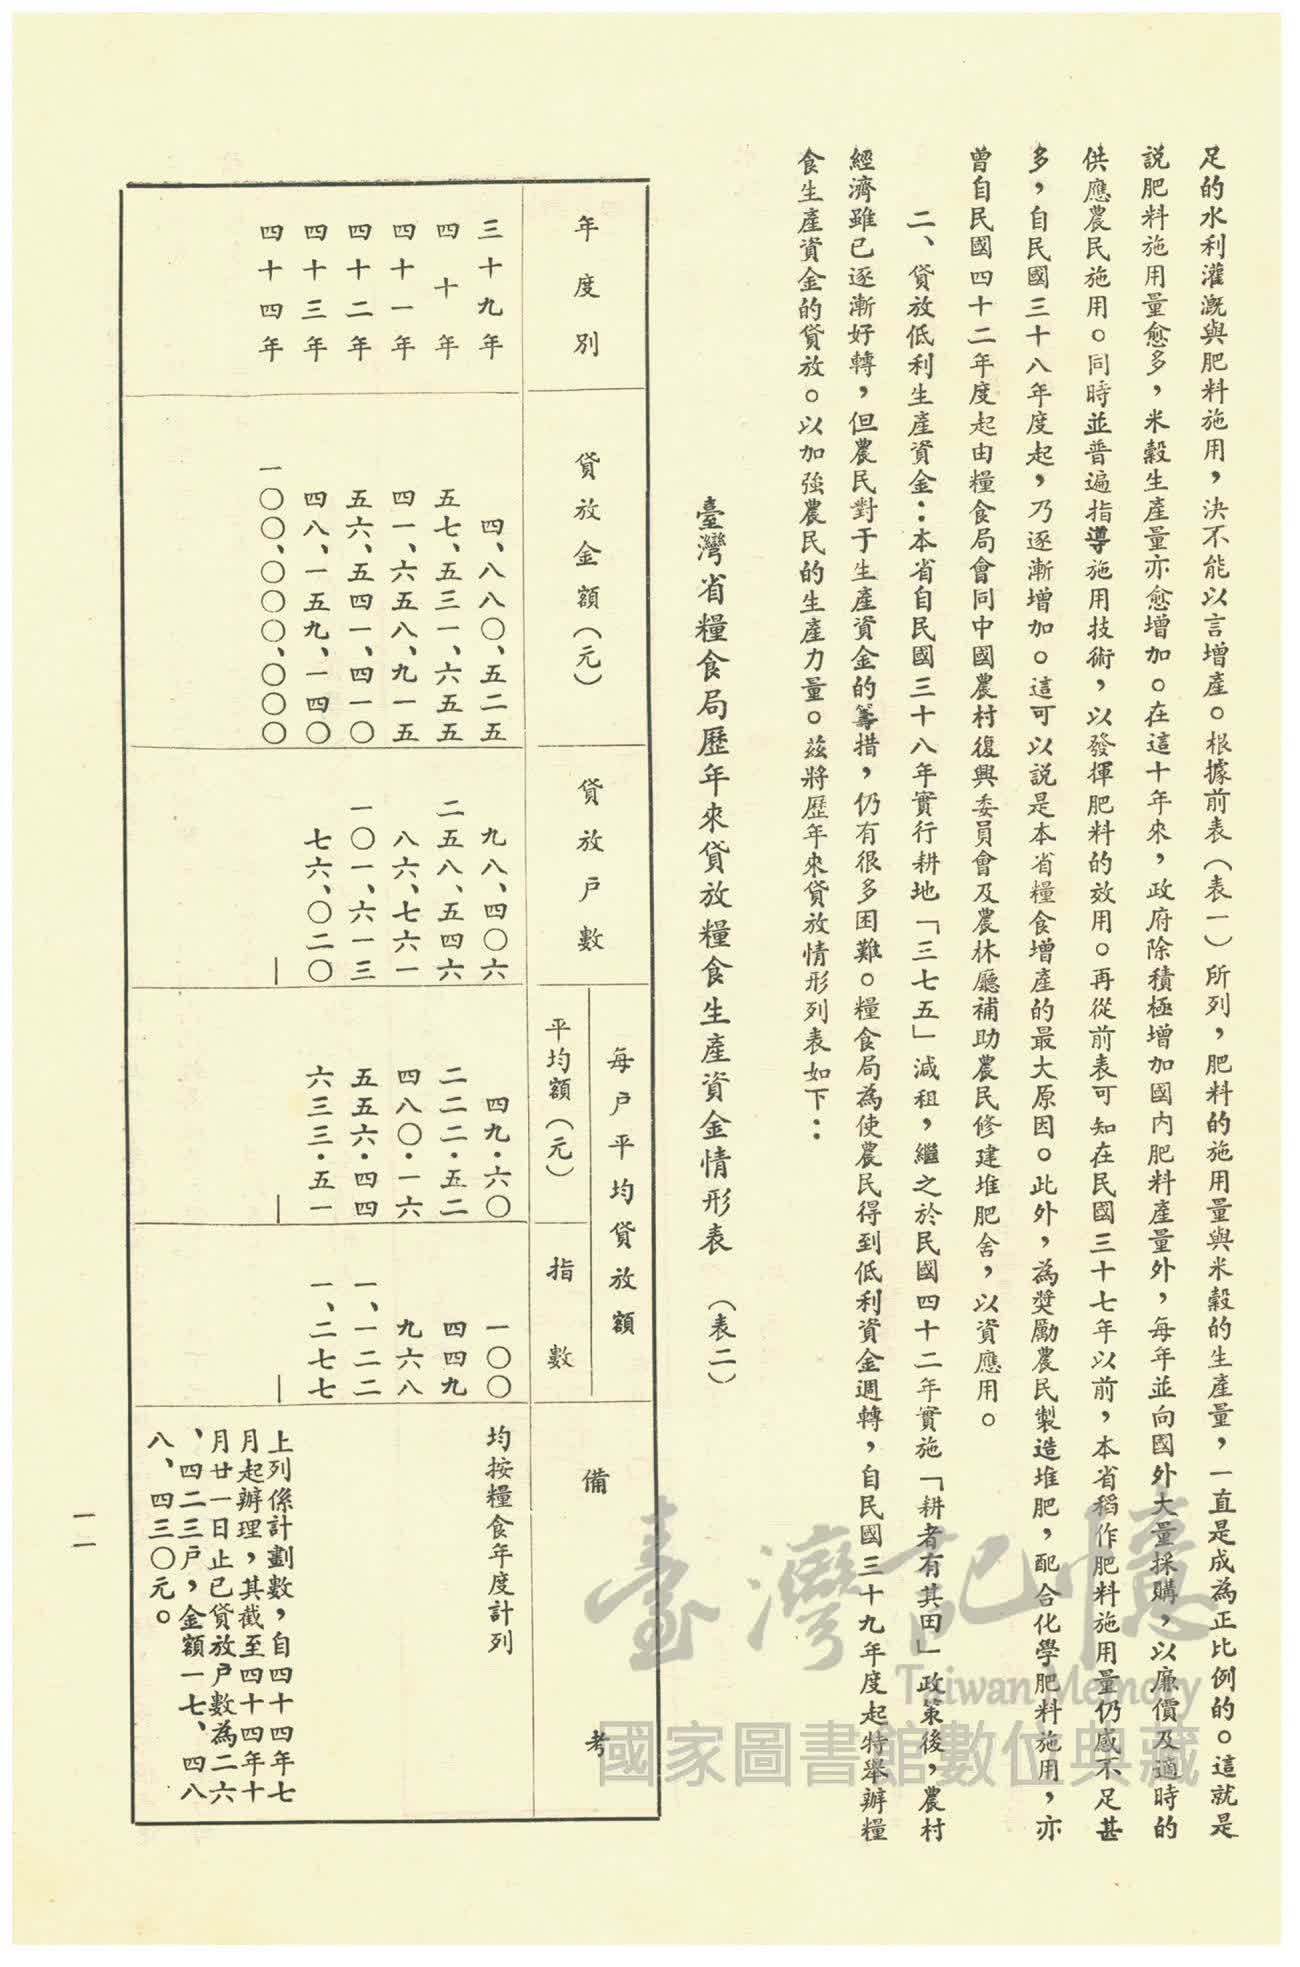 足的水利灌溉與肥料施用，決不能以言增產。根據前表（表一）所列，肥料的施用量與米穀的生產量，一直是成為正比例的。這就是
說肥料施用量愈多，米穀生產量亦愈增加。在這十年來，政府除積極增加國內肥料產量外，每年並向國外大量採購，以廉價及適時的
供應農民施用。同時並普遍指導施用技術，以發揮肥料的效用。再從前表可知在民國三十七年以前，本省稻作肥料施用量仍感不足甚
多，自民國三十八年度起，乃逐漸增加。這可以說是本省糧食增產的最大原因。此外，為獎勵農民製造堆肥，配合化學肥料施用，亦
曾自民國四十二年度起由糧食局會同中國農村復興委員會及農林廳補助農民修建堆肥舍，以資應用。
二、貸放低利生產資金：本省自民國三十八年實行耕地「三七五」減租，繼之於民國四十二年實施「耕者有其田」政策後，農村
經濟雖已逐漸好轉，但農民對于生產資金的籌措，仍有很多困難。糧食局為使農民得到低利資金週轉，自民國三十九年度起特舉辦糧
食生產資金的貸放。以加強農民的生產力量。茲將歷年來貸放情形列表如下：
臺灣省糧食局歷年來貸放糧食生產資金情形表　（表二）
年度別　貸放金額（元）　貸放戶數　每戶平均貸放額　備考
平均額（元）　指數
三十九年　四、八八〇、五二五　九八、四〇六　四九・六〇　一〇〇　均按糧食年度計列
四十年　五七、五三一、六五五　二五八、五四六　二二二・五二　四四九
四十一年　四一、六五八、九一五　八六、七六一　四八〇・一六　九六八
四十二年　五六、五四一、四一〇　一〇一、六一三　五五六・四四　一、一二二
四十三年　四八、一五九、一四〇　七六、〇二〇　六三三・五一　一、二七七
四十四年　一〇〇、〇〇〇、〇〇〇　—　—　—　上列係計劃數，自四十四年七
月起辦理，其截至四十四年十
月廿一日止已貸放戶數為二六
、四二三戶，金額一七、四八
八、四三〇元。
一一
臺灣記憶
Taiwan Memory
國家圖書館數位典藏